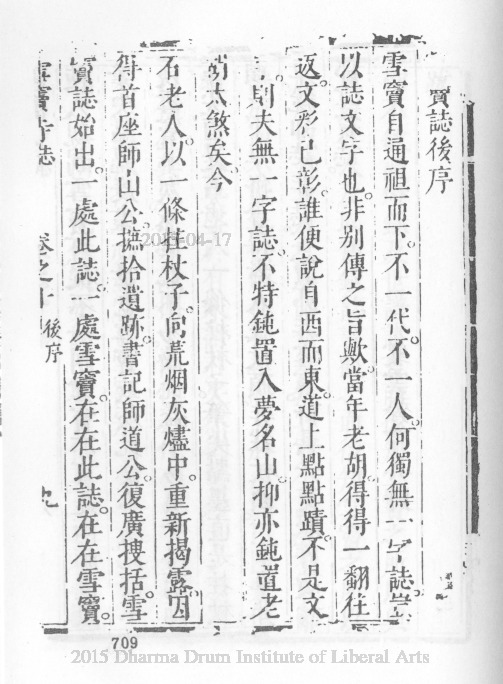 寶誌後序
雪竇自通祖而下。不一代。不一人。何獨無一字誌。豈
以誌文字也。非別傳之旨歟。當年老胡。得得一翻往
返。文彩已彰。誰便說自西而東。道上點點蹟。不是文
則夫無一字誌。不特鈍置入夢名山。抑亦鈍置老
胡太煞矣。今
石老人。以一條拄杖子。向荒烟灰燼中。重新揭露。因
得首座師山公。摭拾遺跡。書記師道公。復廣搜括。雪
竇誌始出。一處此誌。一處雪竇。在在此誌。在在雪竇。
雪竇寺誌 卷之十 後序 九
709
2015-04-17
2015 Dharma Drum Institute of Liberal Arts